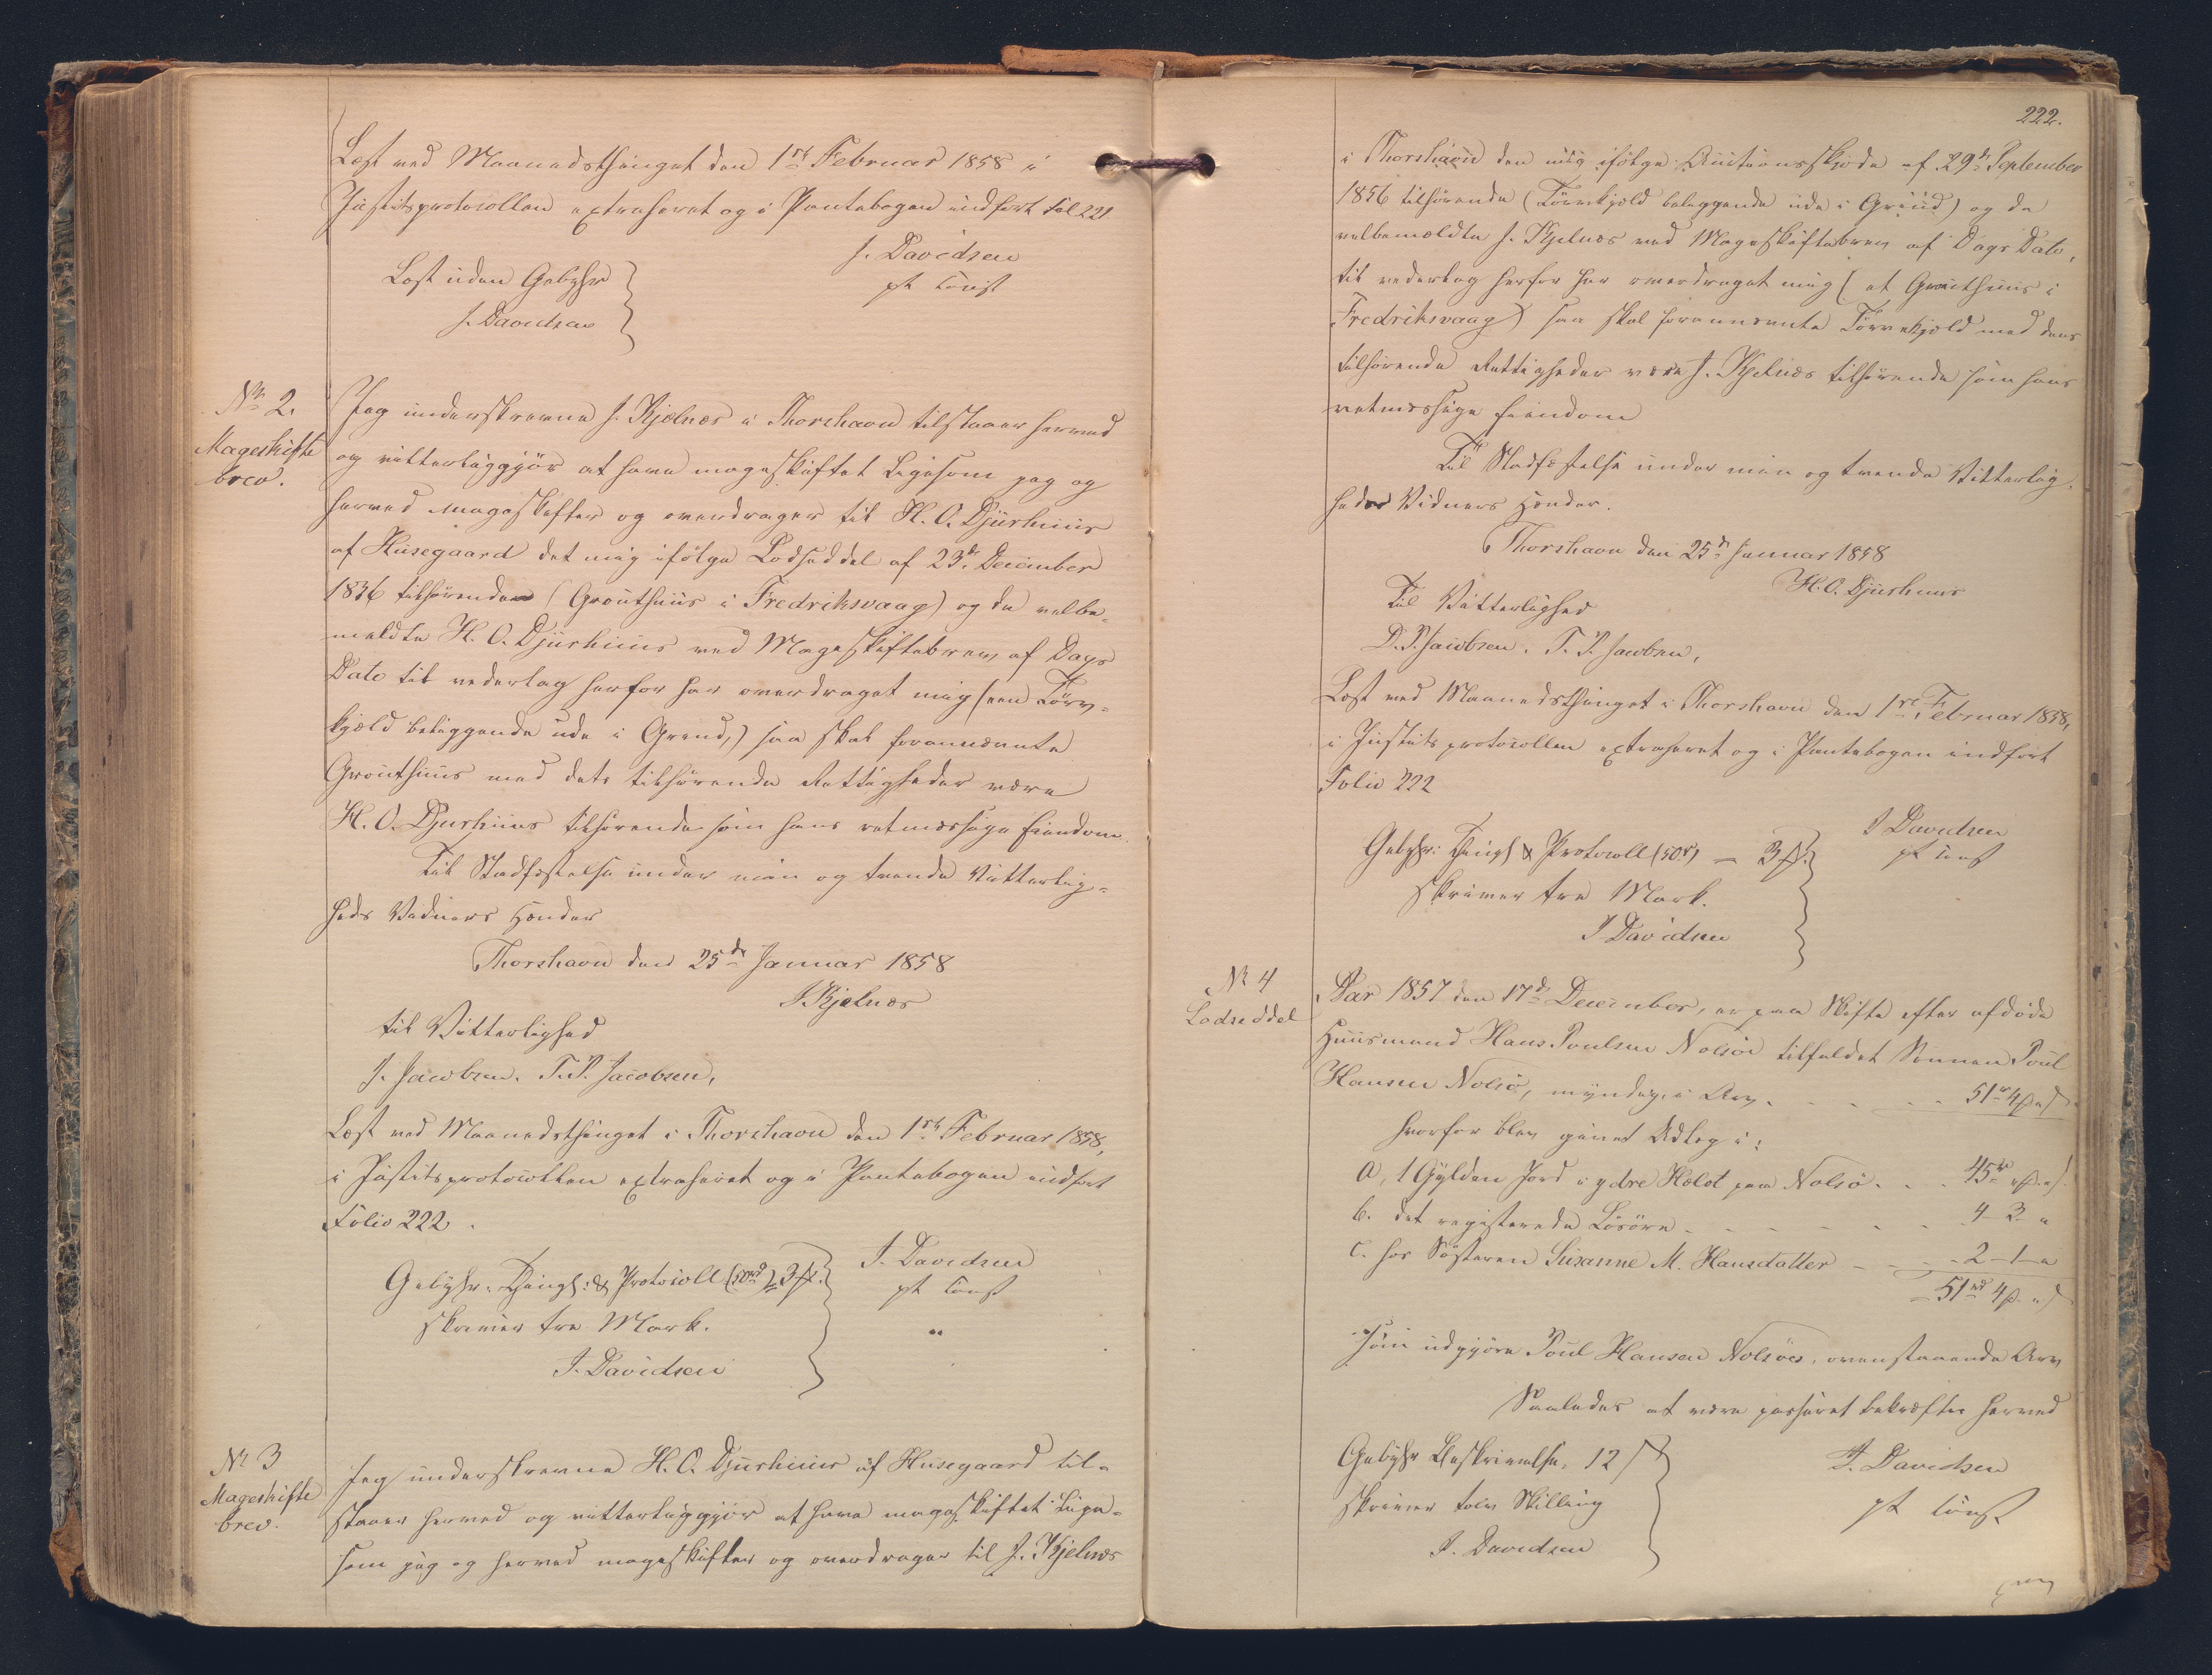 Læst ved Maanedsthinget den 1ste Februar 1858 i
Justitsprotocollen extraheret og i Pantebogen indført Fol 221
J. Davidsen
pt const
Læst uden Gebyhr
J. Davidsen
No 2.
Mageskifte
brev.
Jeg underskrevne J. Kjelnæs i Thorshavn tilstaaer herved
og vitterliggjör at have mageskiftet ligesom jeg og
herved mageskifter og overdrager til H. O. Djurhuus
af Husegaard det mig ifølge Lodseddel af 23de December
1836 tilhørende (Grouthuus i Fredriksvaag) og da velbe-
meldte H. O. Djurhuus ved Mageskiftebrev af Dags
Dato til vederlag herfor har overdraget mig (een Törv-
kjæld beliggende ude i Grund,) saa skal forannævnte
Grouthuus med dets tilhørende Rettigheder være
H. O. Djurhuus tilhørende som hans retmæssige Eiendom
Til Stadfæstelse under min og tvende Vitterlig-
heds Vidners Hænder
Thorshavn den 25de Januar 1858
J Kjelnæs
til Vitterlighed
J. Jacobsen. T. P. Jacobsen,
Læst ved Maanedsthinget i Thorshavn den 1ste Februar 1858,
i Justitsprotocollen extraheret og i Pantebogen indført
Folio 222.
J. Davidsen
pt const
Gebyhr. Thingl: & Protocoll (50rd) 3 #.
skriver tre Mark.
J. Davidsen
No 3
Mageskifte
brev.
Jeg underskrevne H. O. Djurhuus af Husegaard til-
staaer herved og vitterliggjör at have mageskiftet lige-
som jeg og herved mageskifter og overdrager til J. Kjelnæs
222.
i Thorshavn den mig ifølge Auctionsskjöde af 29de September
1856 tilhørende (Törvekjæld beliggende ude i Grund) og da
velbemældte J. Kjelnæs ved Mageskiftebrev af Dags Dato,
til vederlag herfor har overdraget mig (et Grouthuus i
Fredriksvaag) saa skal forannævnte Törvekjæld med dens
tilhørende Rettigheder være J. Kjelnæs tilhørende som hans
retmæssige Eiendom
Til Stadfæstelse under min og tvende Vitterlig-
heds Vidners Hænder.
Thorshavn den 25de Januar 1858
H. O. Djurhuus
Til Vitterlighed
D. P. Jacobsen. T. P. Jacobsen,
Læst ved Maanedsthinget i Thorshavn den 1ste Februar 1858,
i Justitsprotocollen extraheret og i Pantebogen indført
Folio 222
J Davidsen
pt const
Gebyhr: Thingl & Protocoll (50rd) – 3 #.
skriver tre Mark.
J Davidsen
No 4
Lodseddel
Aar 1857 den 17de December, er paa Skifte efter afdøde
Huusmand Hans Poulsen Nolsöe tilfaldet Sønnen Poul
Hansen Nolsö, myndig, i Arv. - - - 51rd 4# "ß
hvorfor blev givet Udlæg i:
a, 1 Gylden Jord i ydre Helot paa Nolsö. . . 45rd "# "ß.
b. det registerede Løsøre - - - - 4 – 3 – "
c. hos Søsteren Susanne M. Hansdatter - - - 2 – 1 – "
51rd 4# "ß
som udgjöre Poul Hansen Nolsöes ovenstaaende Arv
Saaledes at være passeret bekræftes herved
J. Davidsen
pt const
Gebyhr Beskrivelse. 12 ß
skriver tolv Skilling
J. Davidsen